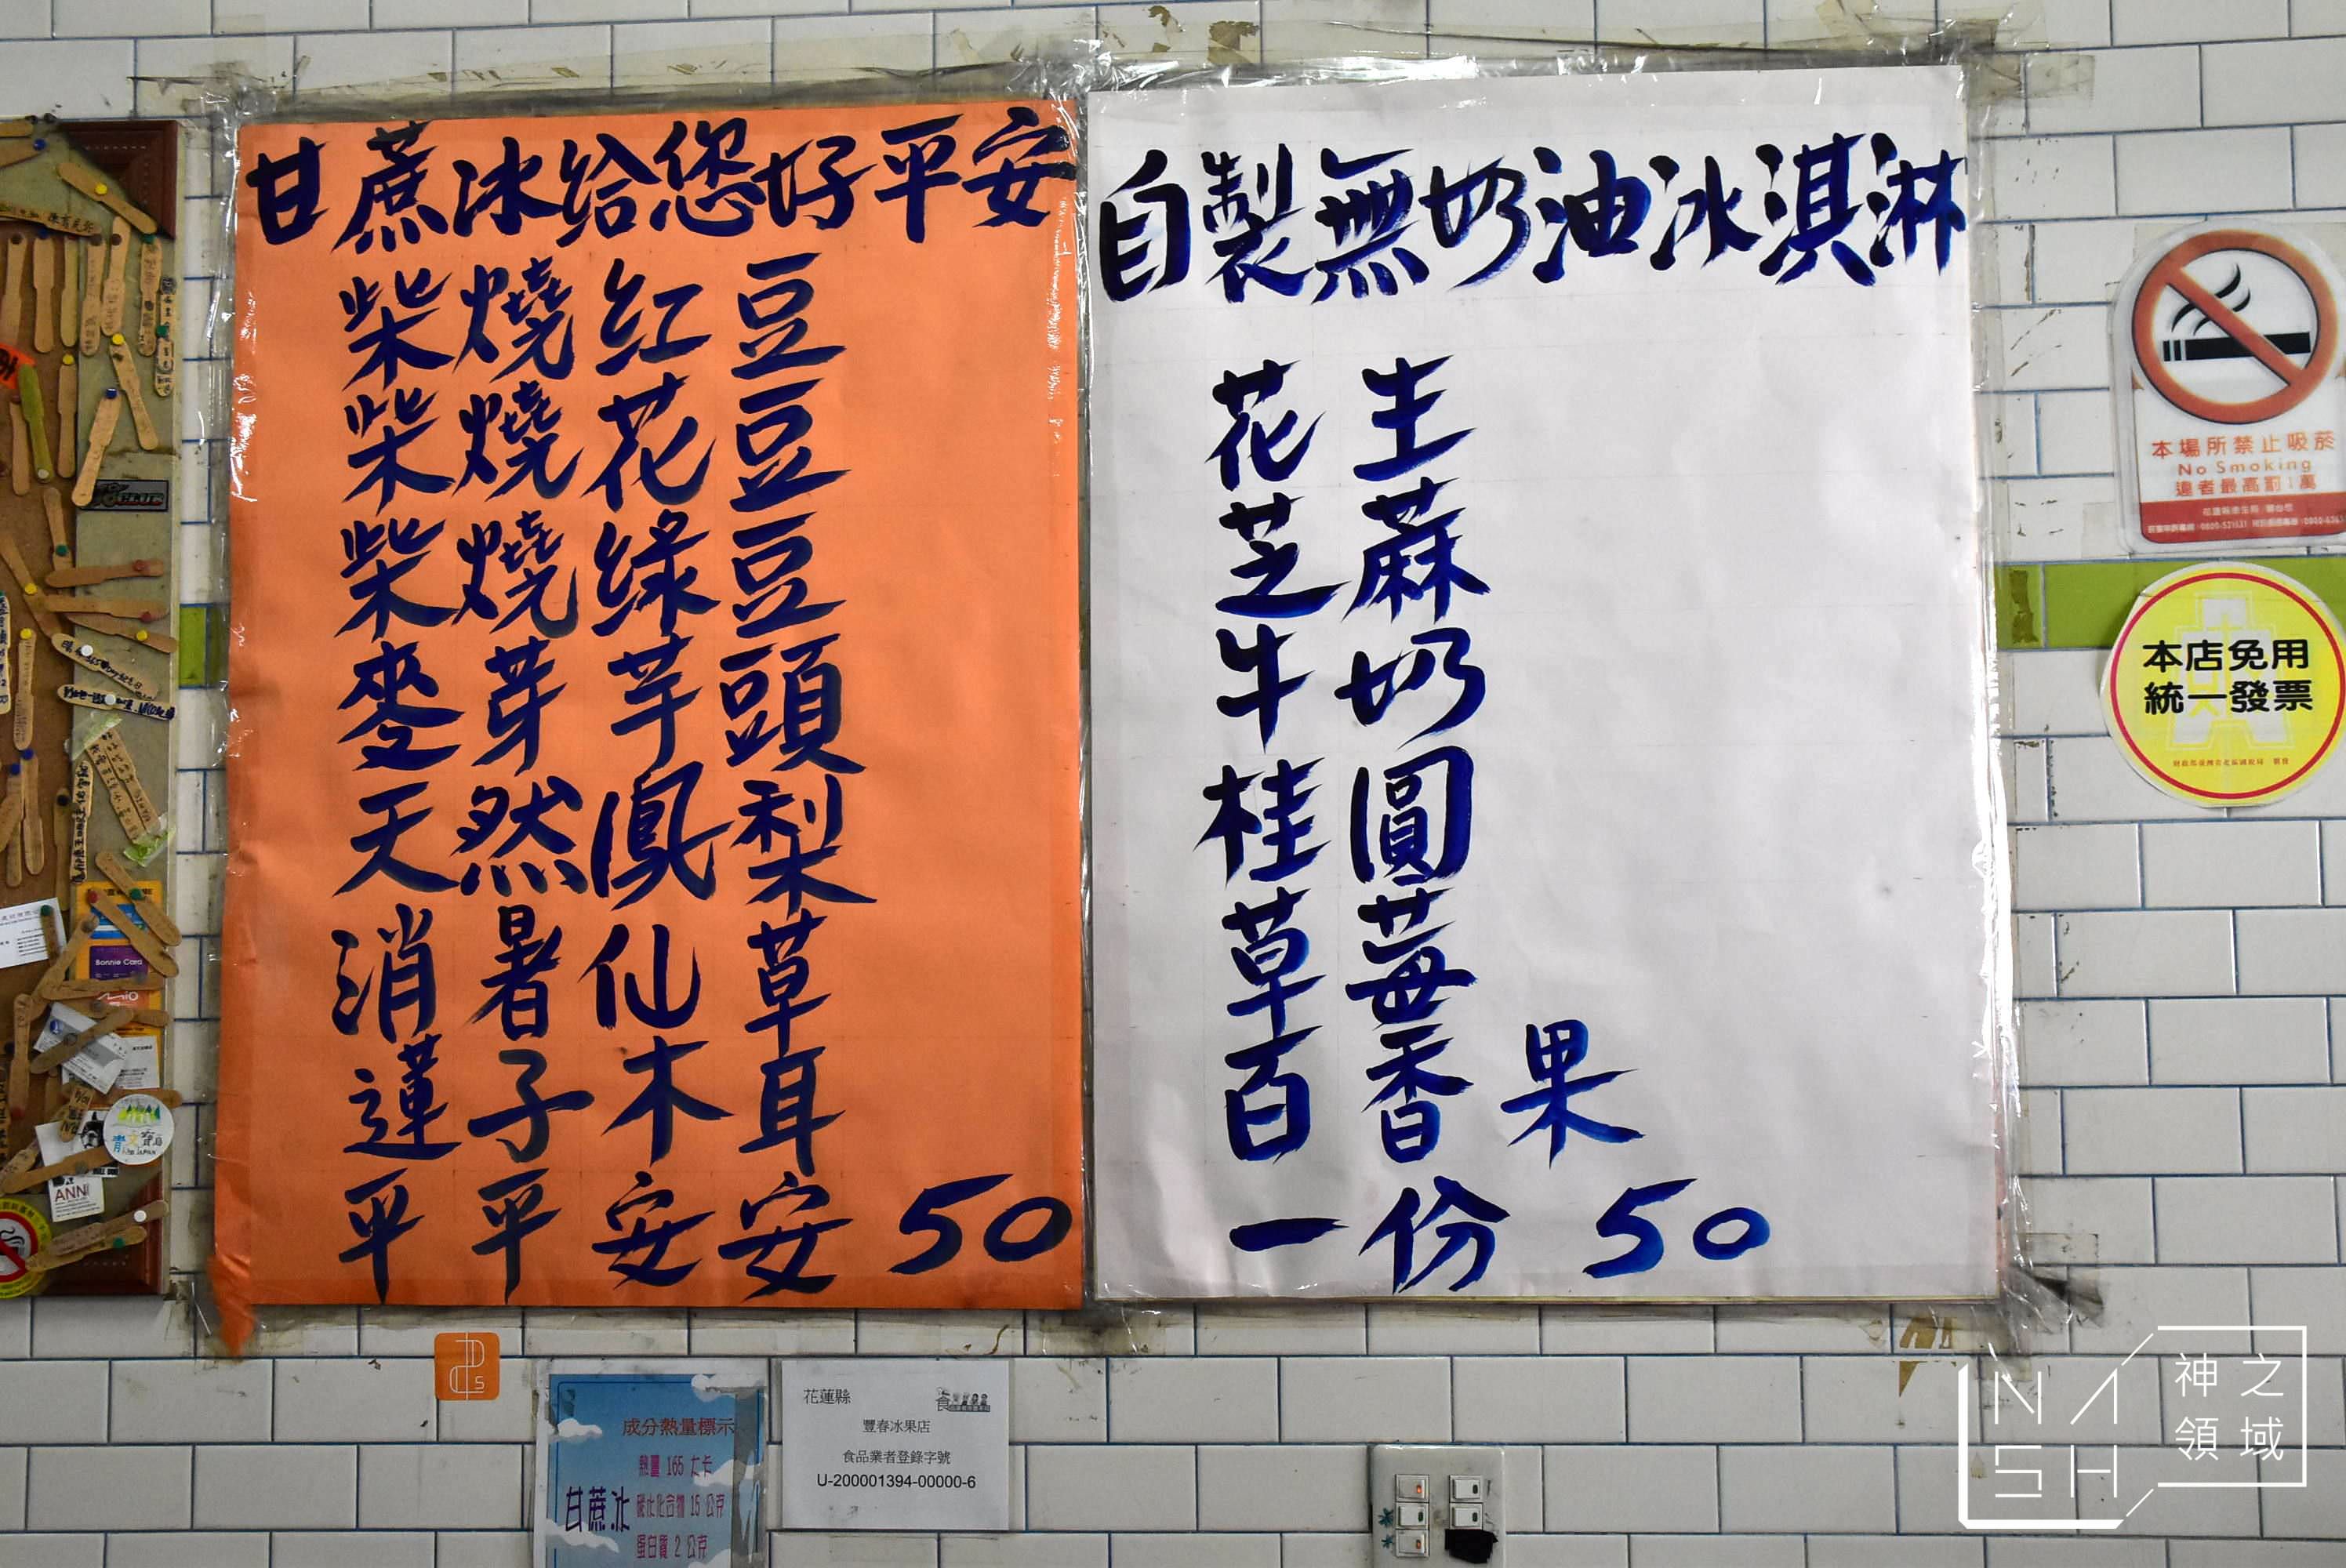 甘蔗冰給您好平安
柴燒紅豆
柴燒花豆
柴燒綠豆
麥芽芋頭
天然鳳梨
消暑仙草
蓮子木耳
平平安安 50
自製無奶油冰淇淋
花生
芝蔴
牛奶
桂圓
草莓
百香果
一份 50
本場所禁止吸菸
No Smoking
違者最高罰1萬
本店免用
統一發票
Bonnie Card
ANN
成分熱量標示
熱量 165 大卡
甘蔗冰
碳水化合物 15 公克
蛋白質 2 公克
花蓮縣
豐春冰果店
食品業者登錄字號
U-200001394-00000-6
NASH
神之領域